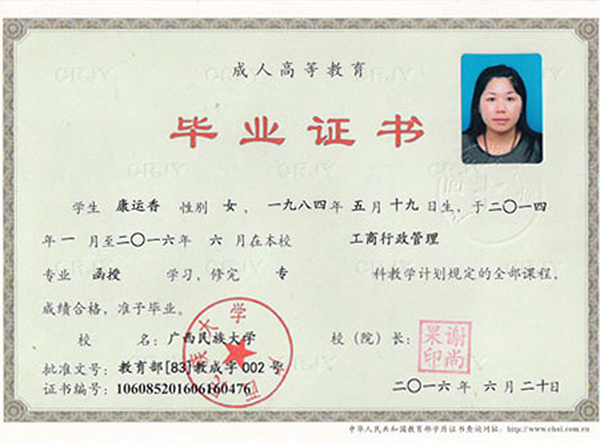 成人高等教育
毕业证书
学生 康运香 性别 女, 一九八四年 五 月 十九 日生, 于二〇一四
年 一 月至二〇一六年 六 月在本校 工商行政管理
专业 函授 学习, 修完 专 科教学计划规定的全部课程,
成绩合格, 准予毕业。
校 名: 广西民族大学 校(院)长: 谢尚果印
批准文号: 教育部[83]教成字 002 号
证书编号: 106085201606160476 二〇一六年 六 月 二十 日
中华人民共和国教育部学历证书查询网址: http://www.chsi.com.cn